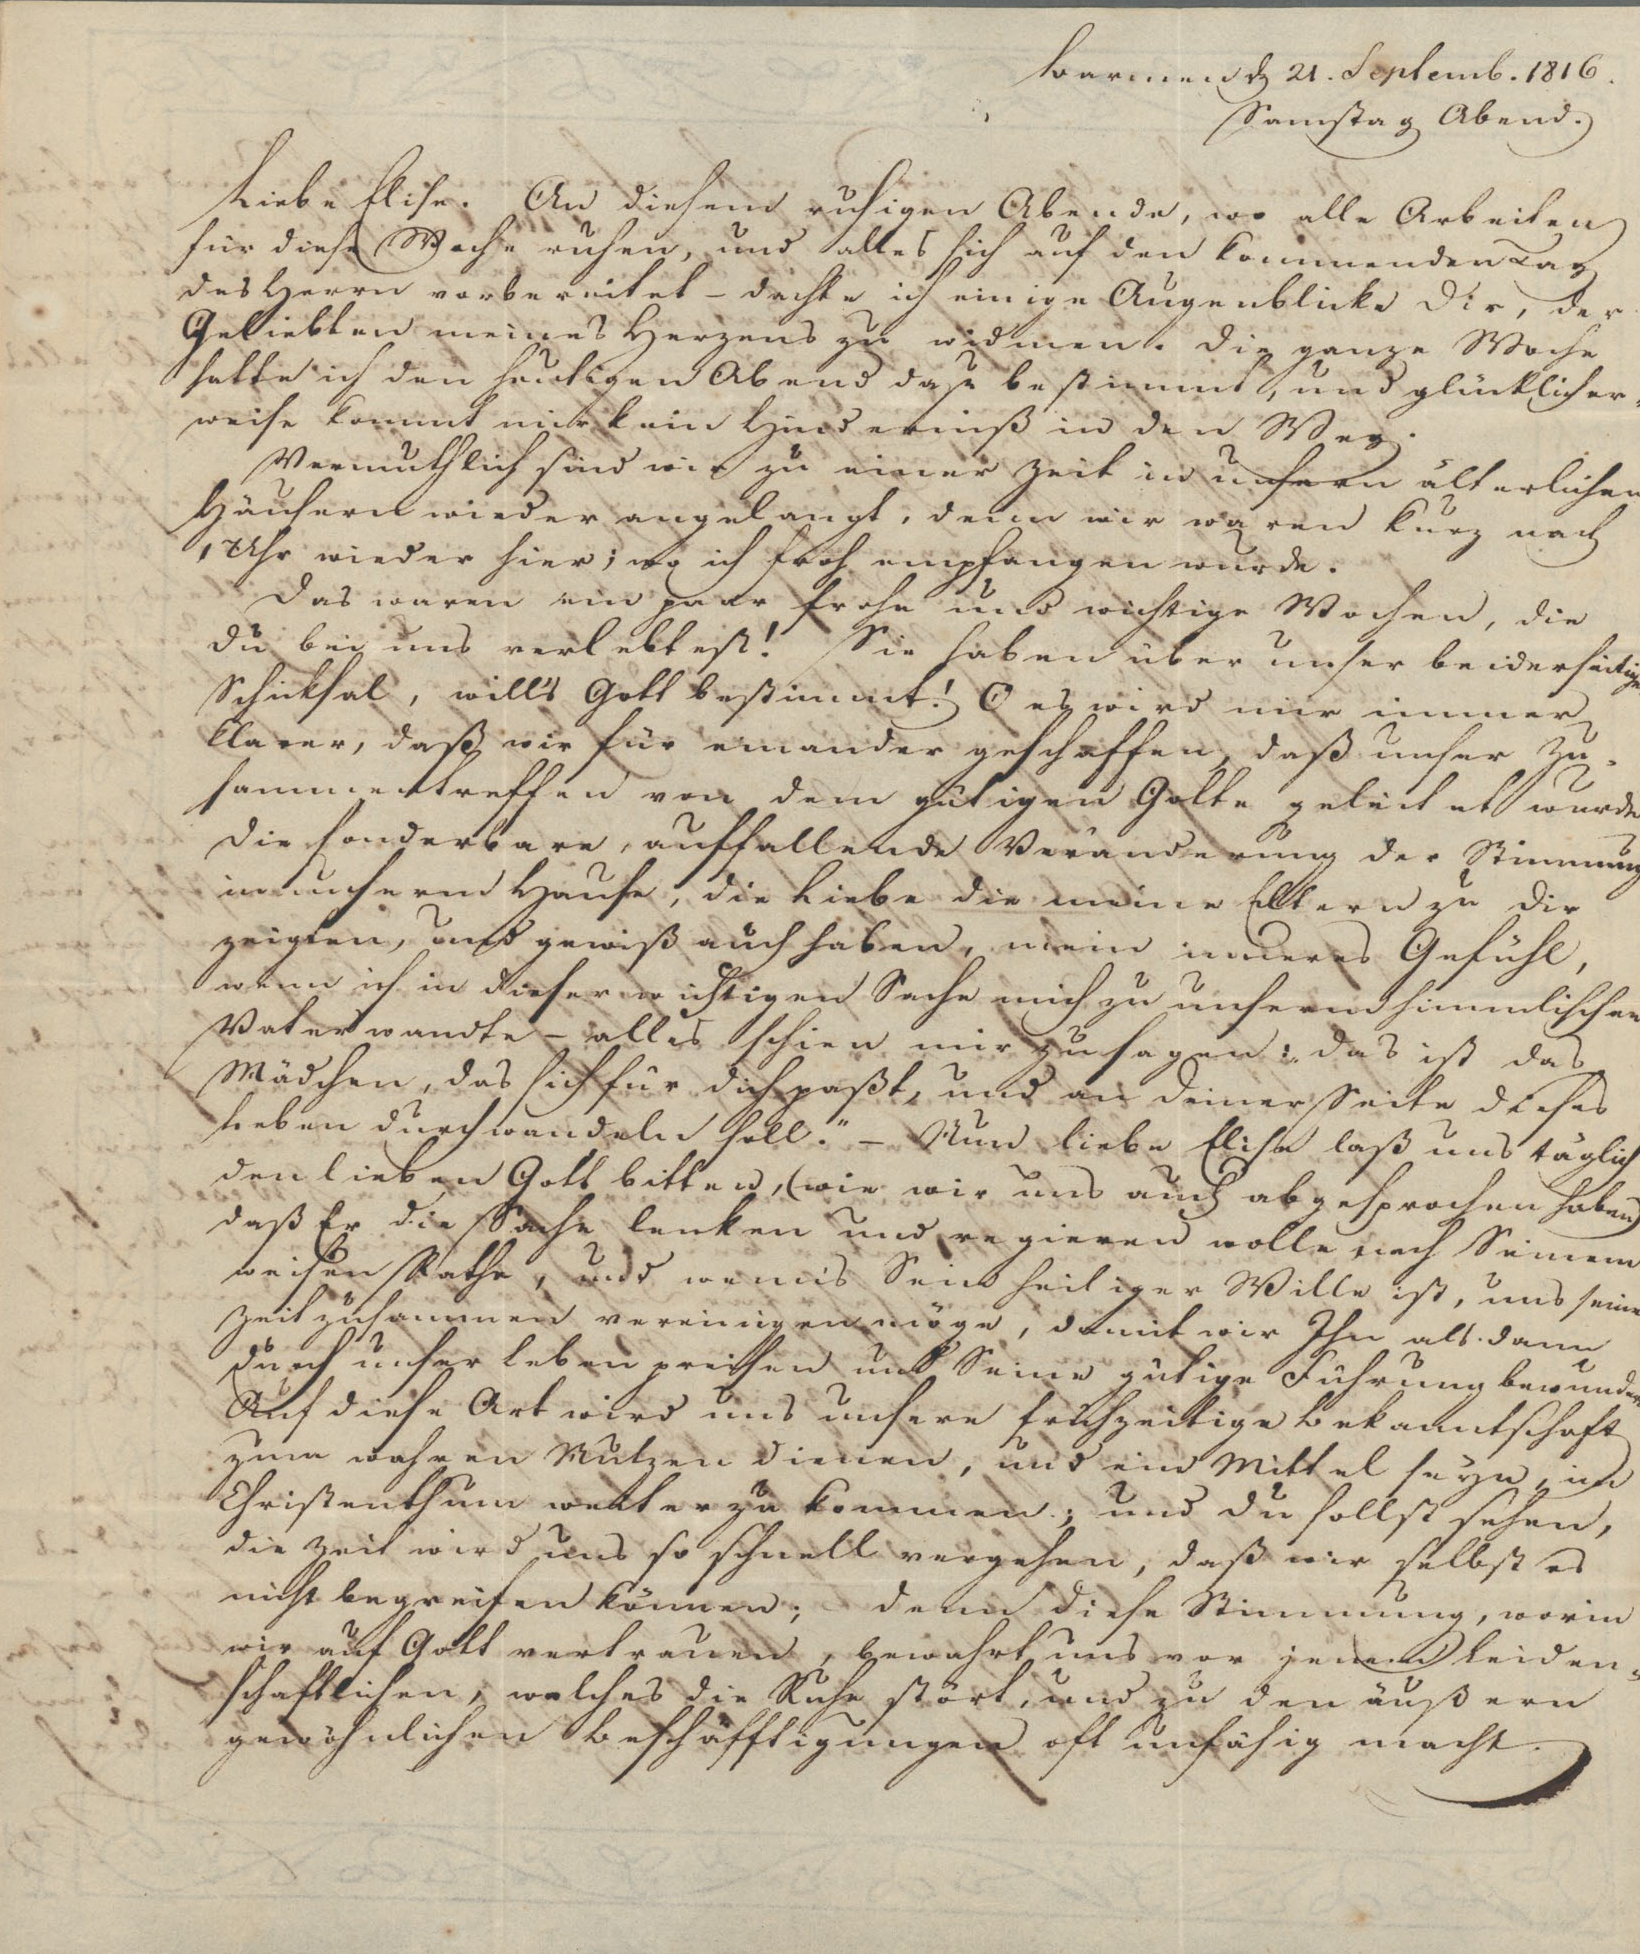 Barmen d 21. Septemb. 1816.
Samstag Abend.
Liebe Elise. An diesem ruhigen Abende, wo alle Arbeiten
für diese Woche ruhen, und alles sich auf den kommenden Tag
des Herrn vorbereitet – dachte ich einige Augenblicke Dir, der
Geliebten meines Herzens zu widmen. Die ganze Woche
hatte ich den heutigen Abend dazu bestimmt, und glücklicher-
weise kommt mir kein Hinderniß in den Weg.
Vermuthlich sind wir zu einer Zeit in unsern älterlichen
Häusern wieder angelangt, denn wir waren kurz nach
1 Uhr wieder hier; wo ich froh empfangen wurde.
Das waren ein paar frohe und wichtige Wochen, die
du bei uns verlebtest! Sie haben über unser beiderseitiges
Schicksal, will's Gott bestimmt! O es wird mir immer
klarer, daß wir für einander geschaffen, daß unser Zu-
sammentreffen von dem gütigen Gotte geleitet wurde
Die sonderbare, auffallende Veränderung der Stimmung
in unserm Hause, die Liebe die meine Eltern zu Dir
zeigten, und gewiß auch haben, mein inneres Gefühl,
wenn ich in dieser wichtigen Sache mich zu unserm himmlischen
Vater wandte – alles schien mir zu sagen: das ist das
Mädchen, das sich für dich paßt, und an deiner Seite dieses
Leben durchwandeln soll." – Nun liebe Elise laß uns täglich
den lieben Gott bitten, (wie wir uns auch abgesprochen haben)
daß Er die Sache lenken und regieren wolle nach Seinem
weisen Rathe, und wenn's Sein heiliger Wille ist, uns seiner
Zeit zusammen vereinigen möge, damit wir Ihn als dann
durch unser Leben preisen und Seine gütige Führung bewundern
Auf diese Art wird uns unsere frühzeitige Bekanntschaft
zum wahren Nutzen dienen, und ein Mittel seyn, im
Christenthum weiter zu kommen; und du sollst sehen,
die Zeit wird uns so schnell vergehen, daß wir selbst es
nicht begreifen können; denn diese Stimmung, worin
wir auf Gott vertrauen, bewahrt uns vor jenem Leiden-
schaftlichen, welches die Ruhe stört, und zu den äußern
gewöhnlichen Beschäfftigungen oft unfähig macht.